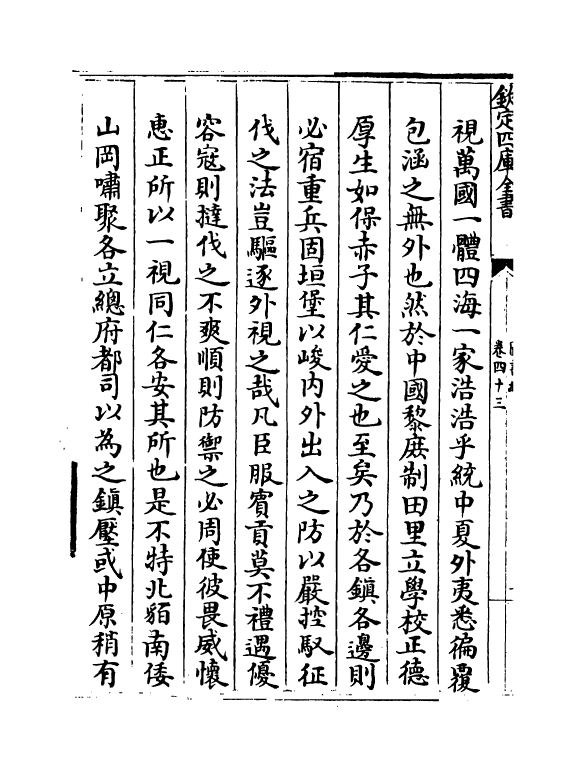 欽定四庫全書
卷四十三
視萬國一體四海一家浩浩乎統中夏外夷悉徧覆
包涵之無外也然於中國黎庶制田里立學校正德
厚生如保赤子其仁愛之也至矣乃於各鎮各邊則
必宿重兵固垣堡以峻内外出入之防以嚴控馭征
伐之法豈驅逐外視之哉凡臣服賓貢莫不禮遇優
容寇則撻伐之不爽順則防禦之必周使彼畏威懷
惠正所以一視同仁各安其所也是不特北貊南倭
山岡嘯聚各立總府都司以為之鎮壓或中原稍有